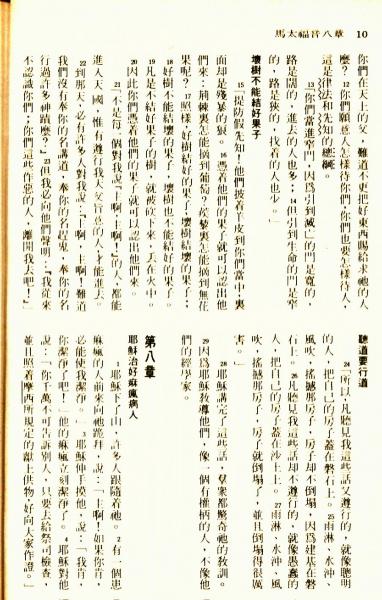 馬太福音八章 10
你們在天上的父,難道不更把好東西賜給求祂的人
麼? 12 你們願意人怎樣待你們,你們也要怎樣待人,
這是律法和先知的總綱。
13「你們當進窄門,因爲引到滅亡的門是寬的,
路是闊的,進去的人也多; 14 但引到生命的門是窄
的,路是狹的,找着的人也少。」
壞樹不能結好果子
15「提防假先知!他們披着羊皮到你們當中,裏
面却是殘暴的狼。 16 憑着他們的果子就可以認出他
們來:荊棘裏怎能摘到葡萄?蒺藜裏怎能摘到無花
果呢? 17 照樣,好樹結好的果子,壞樹結壞的果子;
18 好樹不能結壞的果子,壞樹也不能結好的果子。
19 凡是不結好果子的樹,就被砍下來,丢在火中。
20 因此你們憑着他們的果子就可以認出他們來。
21「不是每一個對我說『主啊!主啊!』的人,都能
進入天國,惟有遵行我天父旨意的人,才能進去。
22 到那天,必有許多人對我說:『主啊!主啊!難道
我們沒有奉你的名講道,奉你的名趕鬼,奉你的名
行過許多神蹟麼?』 23 但我必向他們聲明:『我從來
不認識你們;你們這些作惡的人,離開我去吧!』
聽道要行道
24「所以,凡聽見我這些話又遵行的,就像聰明
的人,把自己的房子蓋在磐石上。 25 雨淋、水沖、
風吹,搖撼那房子,房子却不倒塌,因爲建基在磐
石上。 26 凡聽見我這些話却不遵行的,就像愚蠢的
人,把自己的房子蓋在沙土上。 27 雨淋、水沖、風
吹,搖撼那房子,房子就倒塌了,並且倒塌得很厲
害。」
28 耶穌講完了這些話,羣衆都驚奇祂的教訓。
29 因爲耶穌教導他們,像一個有權柄的人,不像他
們的經學家。
第八章
耶穌治好痲瘋病人
1 耶穌下了山,許多人跟隨着祂。 2 有一個患
痲瘋的人前來向祂跪拜,說:「主啊!如果你肯,
必能使我潔淨。」 3 耶穌伸手摸他,說:「我肯,
你潔淨了吧!」他的痲瘋立刻潔淨了。 4 耶穌對他
說:「你千萬不可告訴別人,只要去給祭司檢查,
並且照着摩西所規定的獻上供物,好向大家作證。」